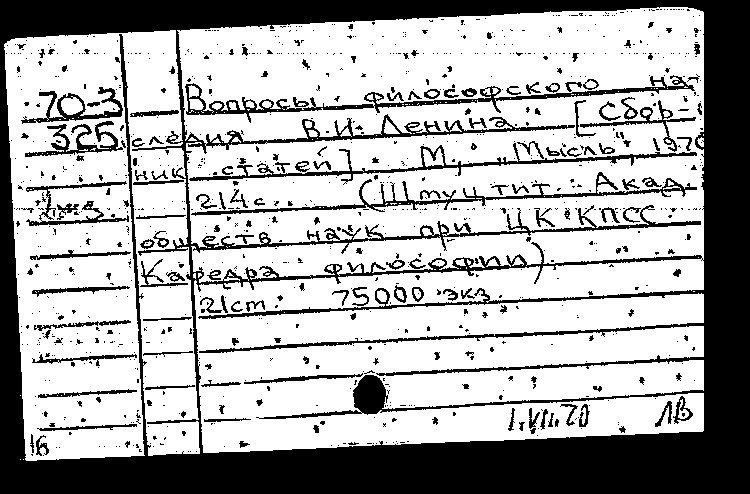 70-3 Вопросы философского на-
325 следия В.И. Ленина. [Сбор-
ник статей]. М., "Мысль", 1970
214с. (Шмуцтит.: Акад.
обществ. наук при ЦК КПСС.
Кафедра философии)
21cm. 75000 экз.
1.VII.70 ЛВ
16